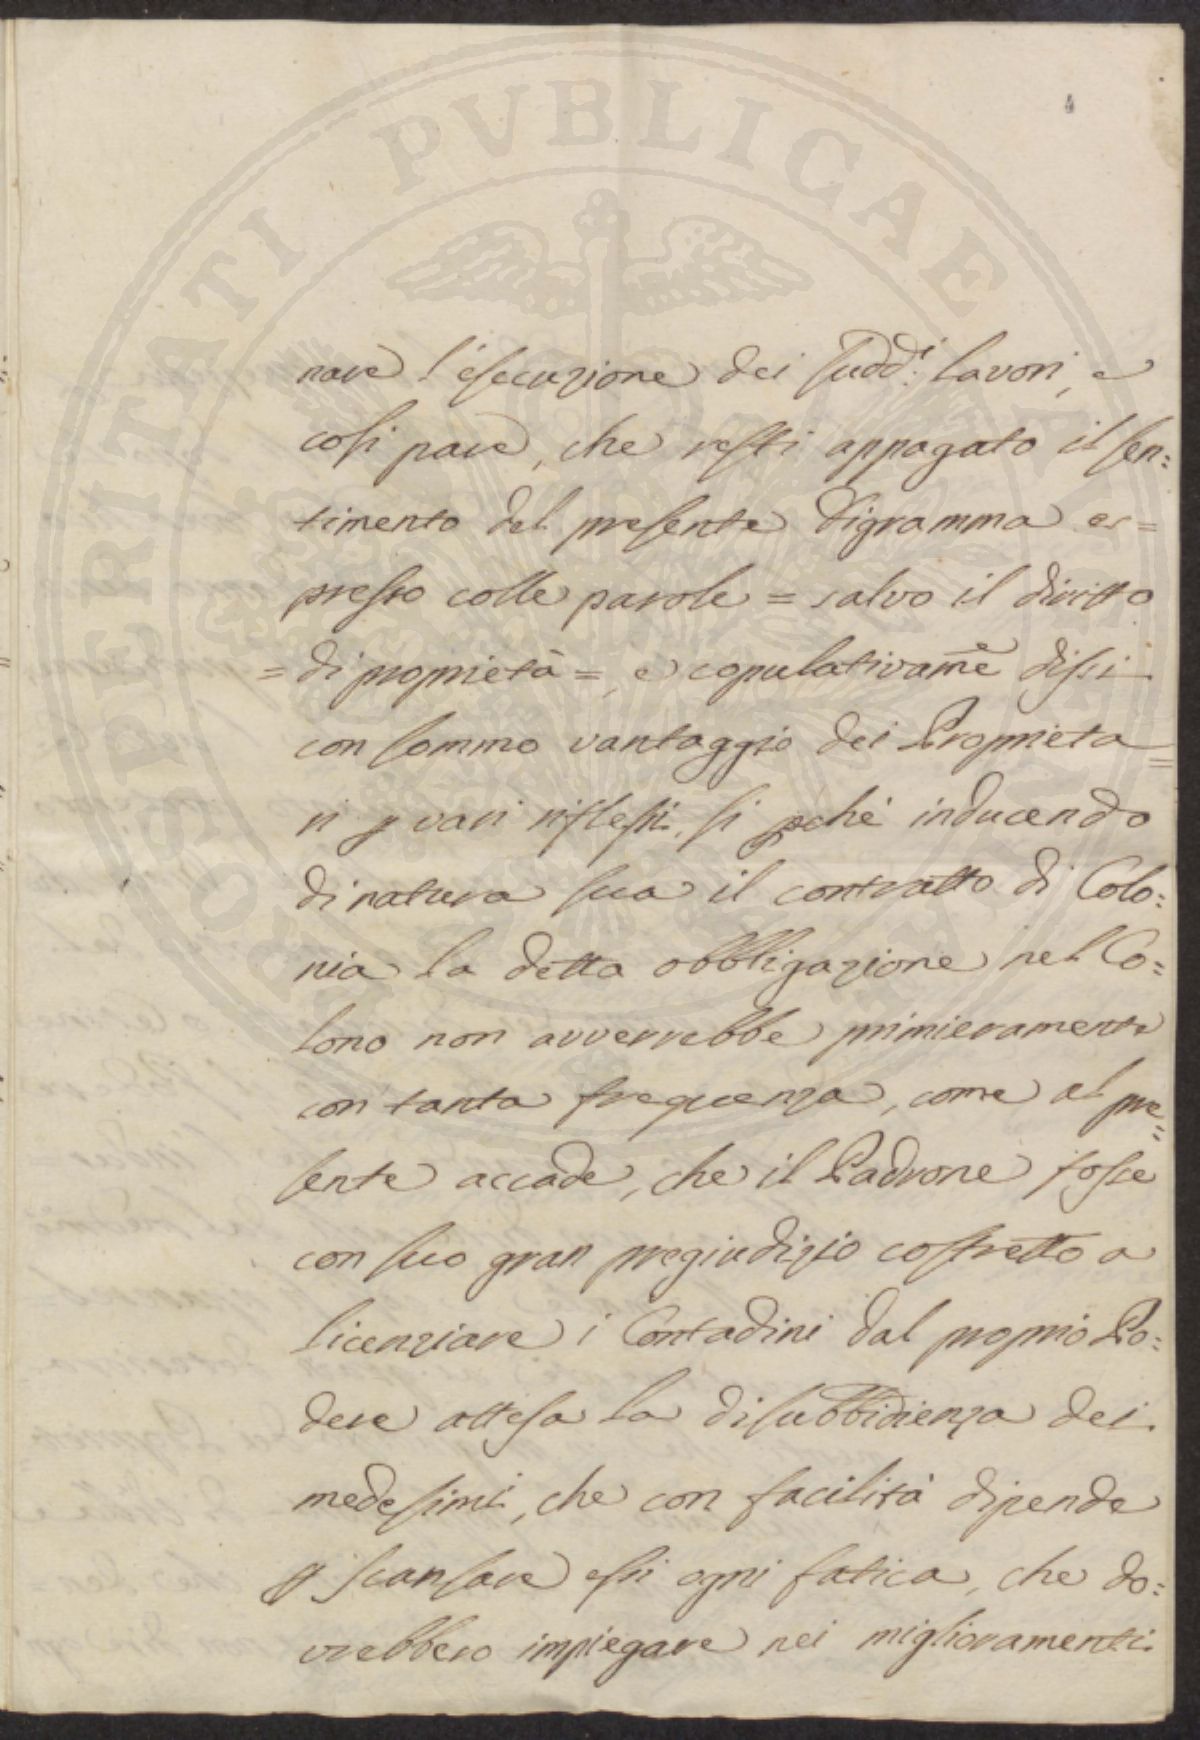 4
nare l'esecuzione dei sudd.i lavori, e
cosi pare, che resti appagato il sen=
timento del presente Tigramma es=
presso colle parole = salvo il diritto
= di proprietà =, e copulativam̃e dissi
con sommo vantaggio dei Proprieta=
ri p vari riflessi, si pchè inducendo
di natura sua il contratto di Colo=
nia la detta obbligazione nel Co=
lono non avverrebbe primieramente
con tanta frequenza, come al pre=
sente accade, che il Padrone fosse
con suo gran pregiudizio costretto a
licenziare i Contadini dal proprio Po=
dere attesa la disubbidienza dei
medesimi, che con facilità dipende
p scansare essi ogni fatica, che do=
vrebbero impiegare nei miglioramenti
PROSPERITATI PVBLICAE AVGENDAE